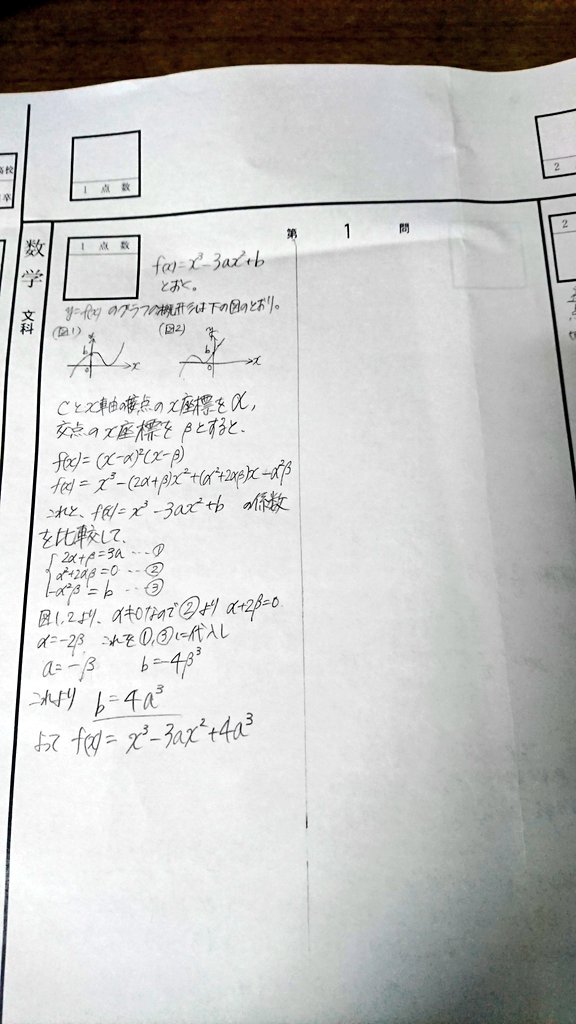 高校
卒
1 点 数
2
数学
文科
1 点 数
第 1 問
2
f(x)=x³-3ax²+b
とおく。
y=f(x) のグラフの概形は下の図のとおり。
(図1) (図2)
y b O x
y b O x
Cとx軸の接点のx座標をα,
交点のx座標をβとすると、
f(x)=(x-α)²(x-β)
f(x)=x³-(2α+β)x²+(α²+2αβ)x-α²β
これと、f(x)=x³-3ax²+b の係数
を比較して、
2α+β=3a …①
α²+2αβ=0 …②
-α²β=b …③
図1,2より、α≠0なので②より α+2β=0
α=-2β これを①,③に代入し
a=-β b=-4β³
これより b=4a³
よって f(x)=x³-3ax²+4a³